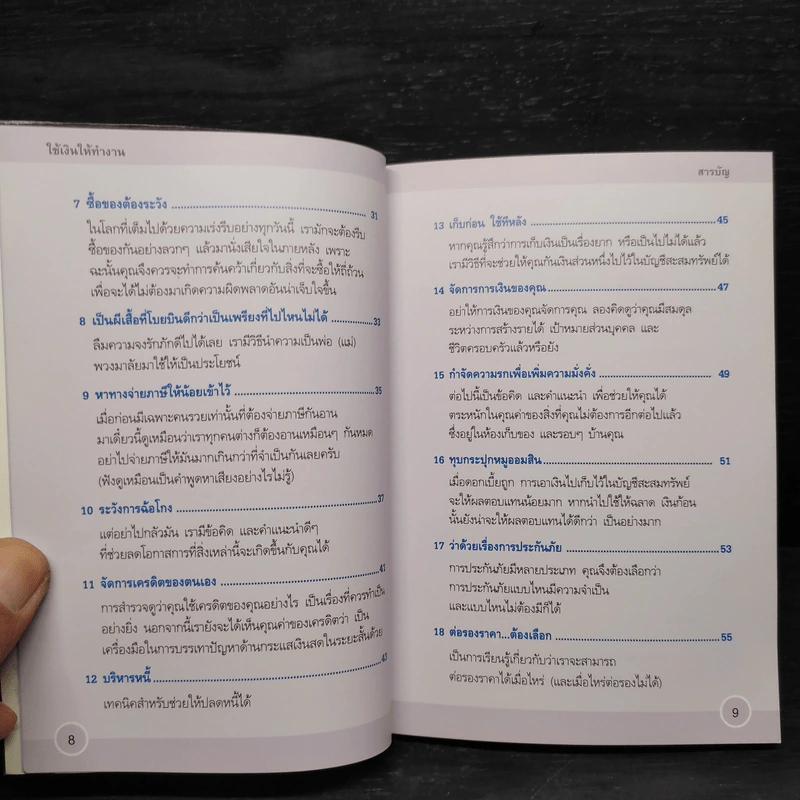 ใช้เงินให้ทำงาน
7 ซื้อของต้องระวัง ........................................ 31
ในโลกที่เต็มไปด้วยความเร่งรีบอย่างทุกวันนี้ เรามักจะต้องรีบ
ซื้อของกันอย่างลวกๆ แล้วมานั่งเสียใจในภายหลัง เพราะ
ฉะนั้นคุณจึงควรจะทำการค้นคว้าเกี่ยวกับสิ่งที่จะซื้อให้ถี่ถ้วน
เพื่อจะได้ไม่ต้องมาเกิดความผิดพลาดอันน่าเจ็บใจขึ้น
8 เป็นผีเสื้อที่โบยบินดีกว่าเป็นเพรียงที่ไปไหนไม่ได้ ............ 33
ลืมความจงรักภักดีไปได้เลย เรามีวิธีนำความเป็นพ่อ (แม่)
พวงมาลัยมาใช้ให้เป็นประโยชน์
9 หาทางจ่ายภาษีให้น้อยเข้าไว้ ................................ 35
เมื่อก่อนมีเฉพาะคนรวยเท่านั้นที่ต้องจ่ายภาษีกันอาน
มาเดี๋ยวนี้ดูเหมือนว่าเราทุกคนต่างก็ต้องอานเหมือนๆ กันหมด
อย่าไปจ่ายภาษีให้มันมากเกินกว่าที่จำเป็นกันเลยครับ
(ฟังดูเหมือนเป็นคำพูดหาเสียงอย่างไรไม่รู้)
10 ระวังการฉ้อโกง ........................................ 37
แต่อย่าไปกลัวมัน เรามีข้อคิด และคำแนะนำดีๆ
ที่ช่วยลดโอกาสการที่สิ่งเหล่านี้จะเกิดขึ้นกับคุณได้
11 จัดการเครดิตของตนเอง ................................ 41
การสำรวจดูว่าคุณใช้เครดิตของคุณอย่างไร เป็นเรื่องที่ควรทำเป็น
อย่างยิ่ง นอกจากนี้เรายังจะได้เห็นคุณค่าของเครดิตว่า เป็น
เครื่องมือในการบรรเทาปัญหาด้านกระแสเงินสดในระยะสั้นด้วย
12 บริหารหนี้ ........................................ 43
เทคนิคสำหรับช่วยให้ปลดหนี้ได้
8
สารบัญ
13 เก็บก่อน ใช้ทีหลัง ........................................ 45
หากคุณรู้สึกว่าการเก็บเงินเป็นเรื่องยาก หรือเป็นไปไม่ได้แล้ว
เรามีวิธีที่จะช่วยให้คุณกันเงินส่วนหนึ่งไปไว้ในบัญชีสะสมทรัพย์ได้
14 จัดการการเงินของคุณ ........................................ 47
อย่าให้การเงินของคุณจัดการคุณ ลองคิดดูว่าคุณมีสมดุล
ระหว่างการสร้างรายได้ เป้าหมายส่วนบุคคล และ
ชีวิตครอบครัวแล้วหรือยัง
15 กำจัดความรกเพื่อเพิ่มความมั่งคั่ง ............................ 49
ต่อไปนี้เป็นข้อคิด และคำแนะนำ เพื่อช่วยให้คุณได้
ตระหนักในคุณค่าของสิ่งที่คุณไม่ต้องการอีกต่อไปแล้ว
ซึ่งอยู่ในห้องเก็บของ และรอบๆ บ้านคุณ
16 ทุบกระปุกหมูออมสิน ........................................ 51
เมื่อดอกเบี้ยถูก การเอาเงินไปเก็บไว้ในบัญชีสะสมทรัพย์
จะให้ผลตอบแทนน้อยมาก หากนำไปใช้ให้ฉลาด เงินก้อน
นั้นยังน่าจะให้ผลตอบแทนได้ดีกว่า เป็นอย่างมาก
17 ว่าด้วยเรื่องการประกันภัย ................................ 53
การประกันภัยมีหลายประเภท คุณจึงต้องเลือกว่า
การประกันภัยแบบไหนมีความจำเป็น
และแบบไหนไม่ต้องมีก็ได้
18 ต่อรองราคา...ต้องเลือก ................................ 55
เป็นการเรียนรู้เกี่ยวกับว่าเราจะสามารถ
ต่อรองราคาได้เมื่อไหร่ (และเมื่อไหร่ต่อรองไม่ได้)
9